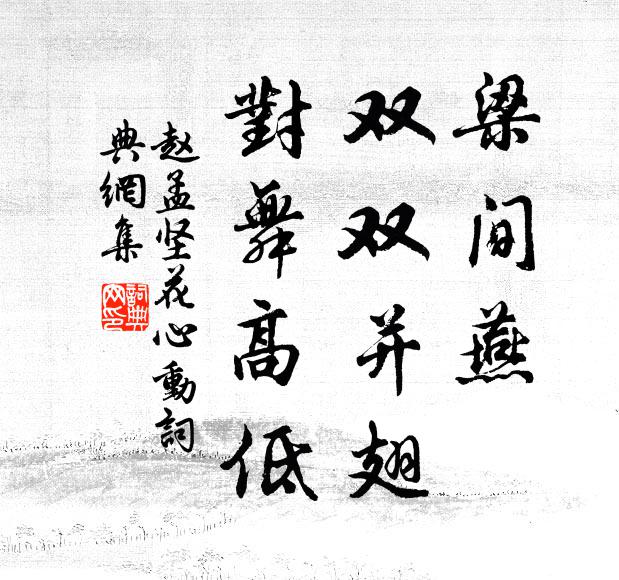 梁间燕
双双并翅
對舞高低
赵孟坚花心動詞
典網集
詞典
网印